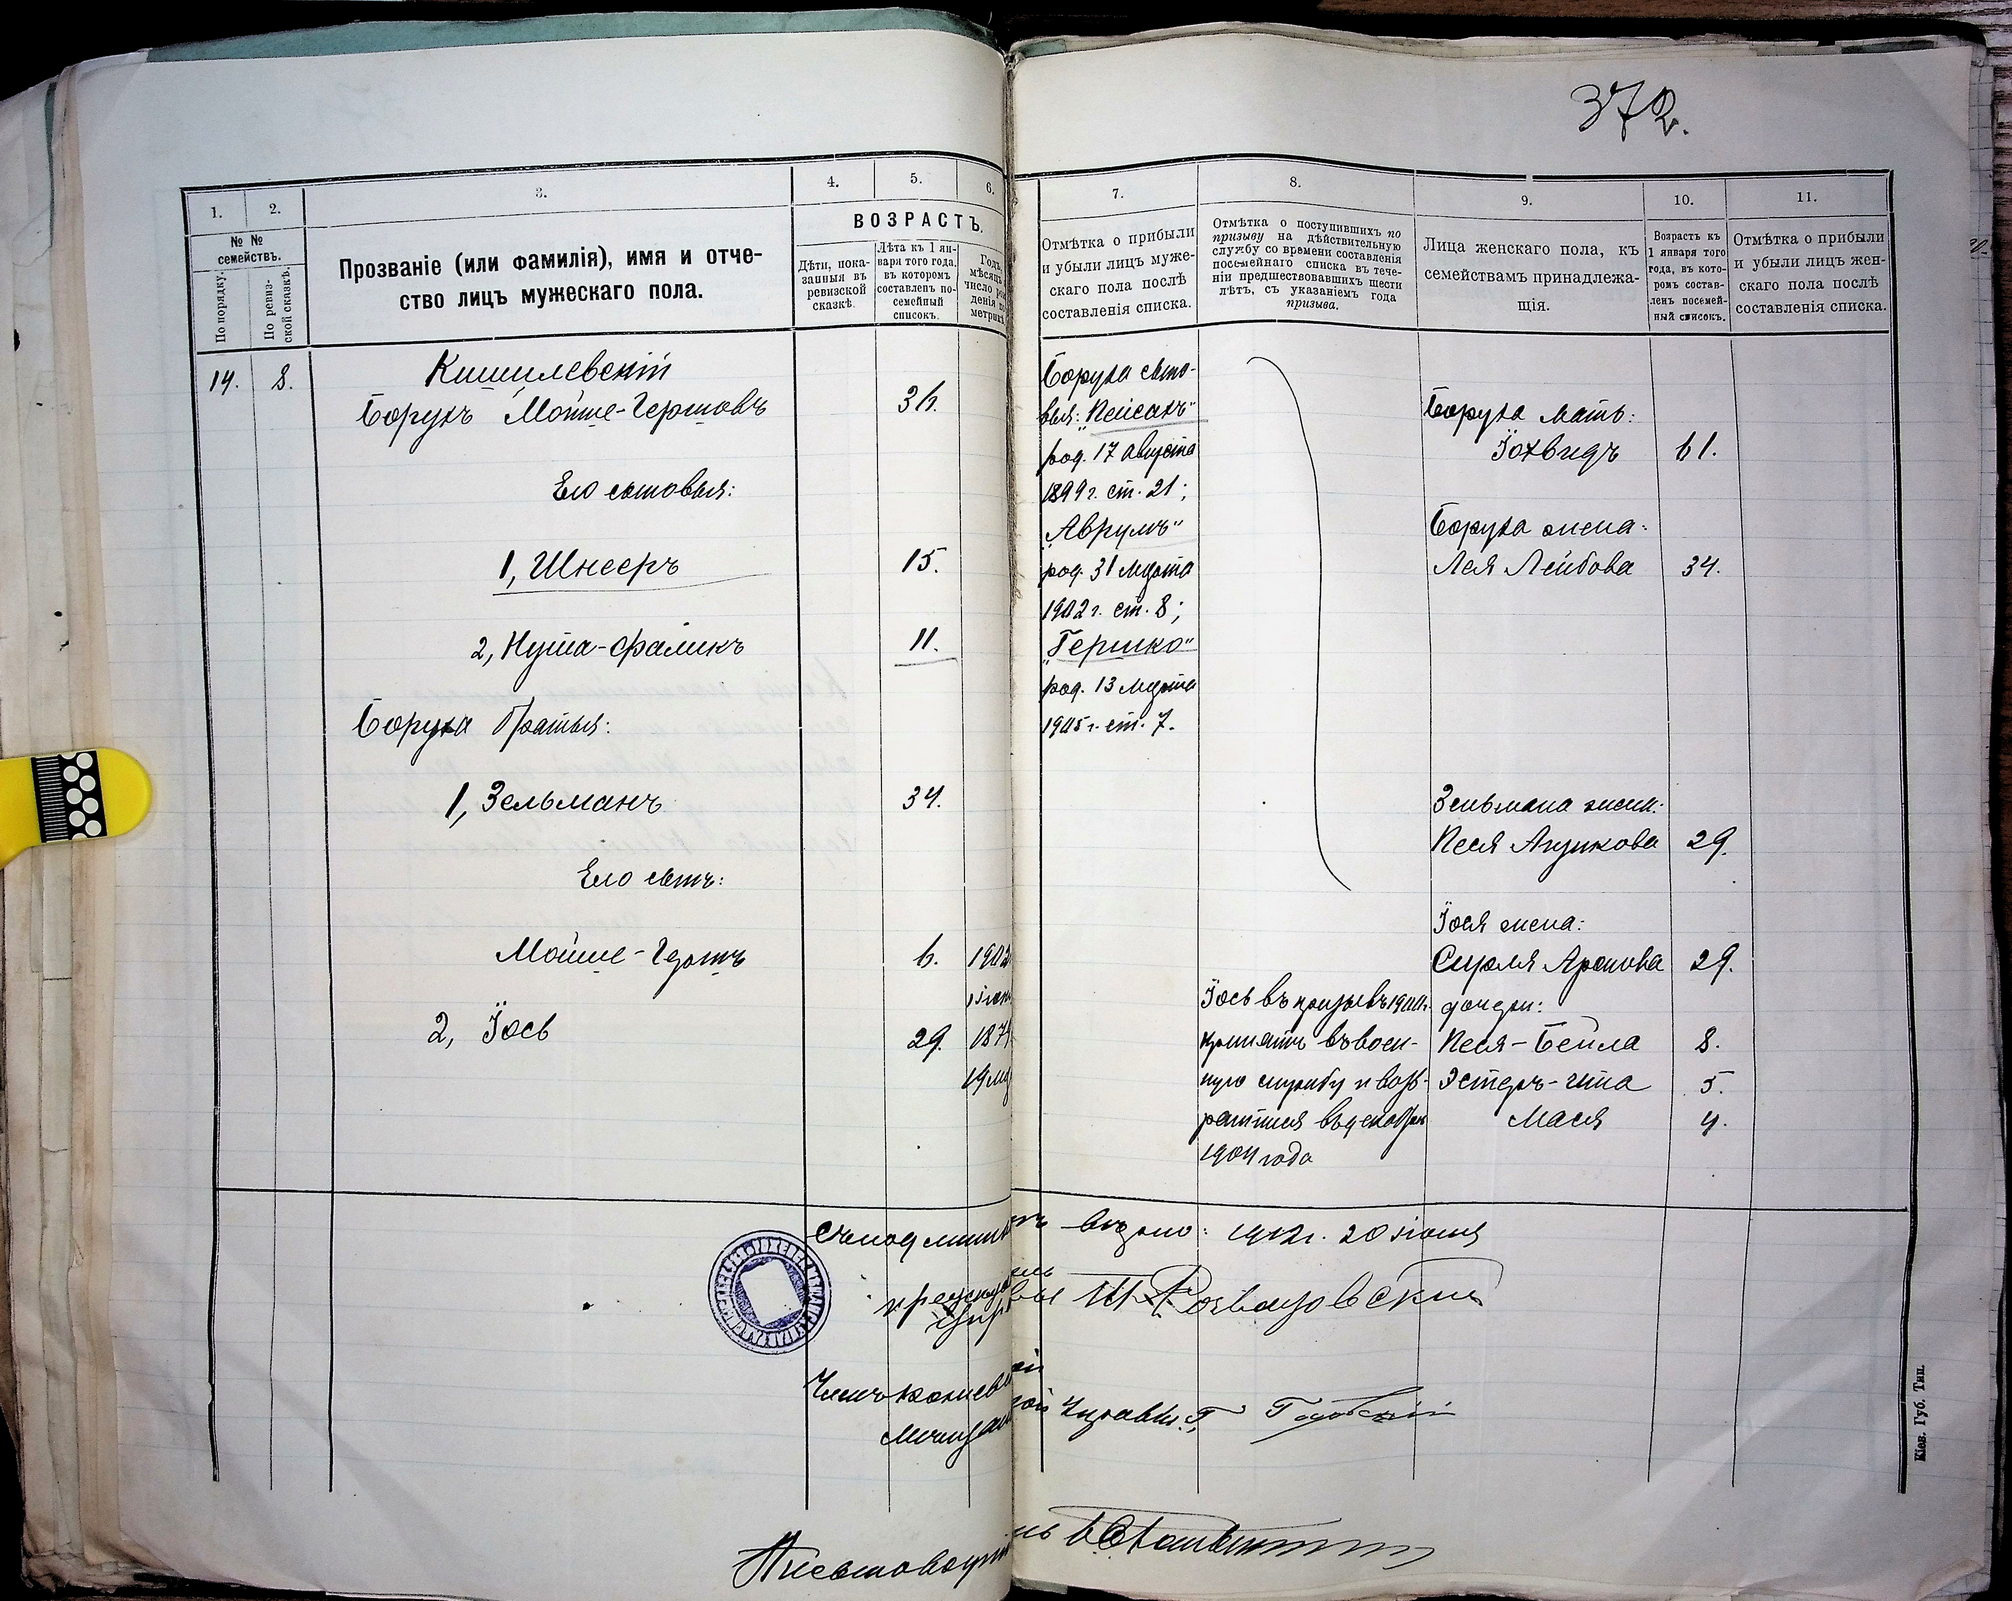 372.
1.
2.
3.
4.
5.
6.
7.
8.
9.
10.
11.
№ №
семействъ.
По порядку.
По ревиз-
ской сказкѣ.
Прозваніе (или фамилія), имя и отче-
ство лицъ мужескаго пола.
ВОЗРАСТЪ.
Дѣти, пока-
занныя въ
ревизской
сказкѣ.
Лѣта къ 1 ян-
варя того года,
въ которомъ
составленъ по-
семейный
списокъ.
Годъ,
мѣсяцъ
число
денія
метрик
Отмѣтка о прибыли
и убыли лицъ муже-
скаго пола послѣ
составленія списка.
Отмѣтка о поступившихъ по
призыву на дѣйствительную
службу со времени составленія
посемейнаго списка въ тече-
ніи предшествовавшихъ шести
лѣтъ, съ указаніемъ года
призыва.
Лица женскаго пола, къ
семействамъ принадлежа-
щія.
Возрастъ къ
1 января того
года, въ кото-
ромъ состав-
ленъ посемей-
ный списокъ.
Отмѣтка о прибыли
и убыли лицъ жен-
скаго пола послѣ
составленія списка.
14. 8.
Кишилевскій
Борухъ Мойше-Гершовъ 36.
Его сыновья:
1, Шнееръ 15.
2, Нута-Фаликъ 11.
Боруха братья:
1, Зельманъ 34.
Его сынъ:
Мойше-Гершъ 6. 1902
2, Іось 29. 187
19
Боруха сыно-
вья: „Пейсахъ"
род. 17 Августа
1899 г. ст. 21;
„Аврумъ"
род. 31 Марта
1902 г. ст. 8;
„Гершко"
род. 13 Марта
1905 г. ст. 7.
Іось въ призывъ 1900 г.
принятъ въ воен-
ную службу и воз-
ратился въ декабрѣ
1904 года
Боруха мать:
Іохвидъ 61.
Боруха жена:
Лея Лейбова 34.
Зельмана жена:
Песя Ицикова 29.
Іося жена:
Сурля Аронова 29.
дочери:
Песя-Бейла 8.
Эстеръ-Ита 5.
Мася 4.
Съ подлиннымъ вѣрно: 1912 г. 20 іюня
Членъ
Управы
Кіев. Губ. Тип.